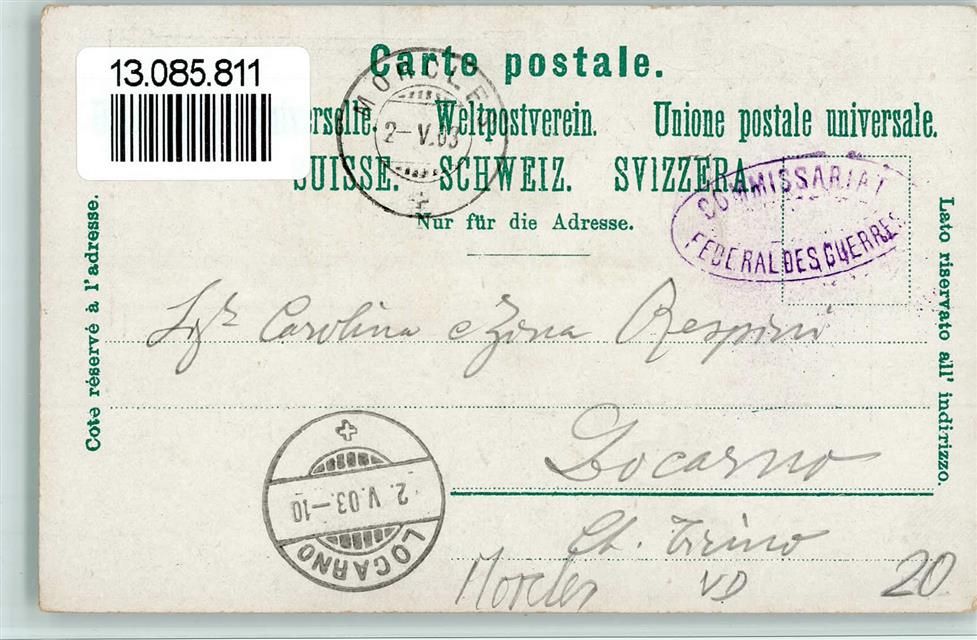 Carte postale.
13.085.811
MORCLES
2-V.03
erselle. Weltpostverein. Unione postale universale.
SUISSE. SCHWEIZ. SVIZZERA.
COMMISSARIAT
FEDERAL DES GUERRES
Nur für die Adresse.
Coté réservé à l'adresse.
Lato riservato all' indirizzo.
Sigre Carolina e Zina Respini
Locarno
Ct. Ticino
2.V.03.-10
LOCARNO
Morcles VD 20